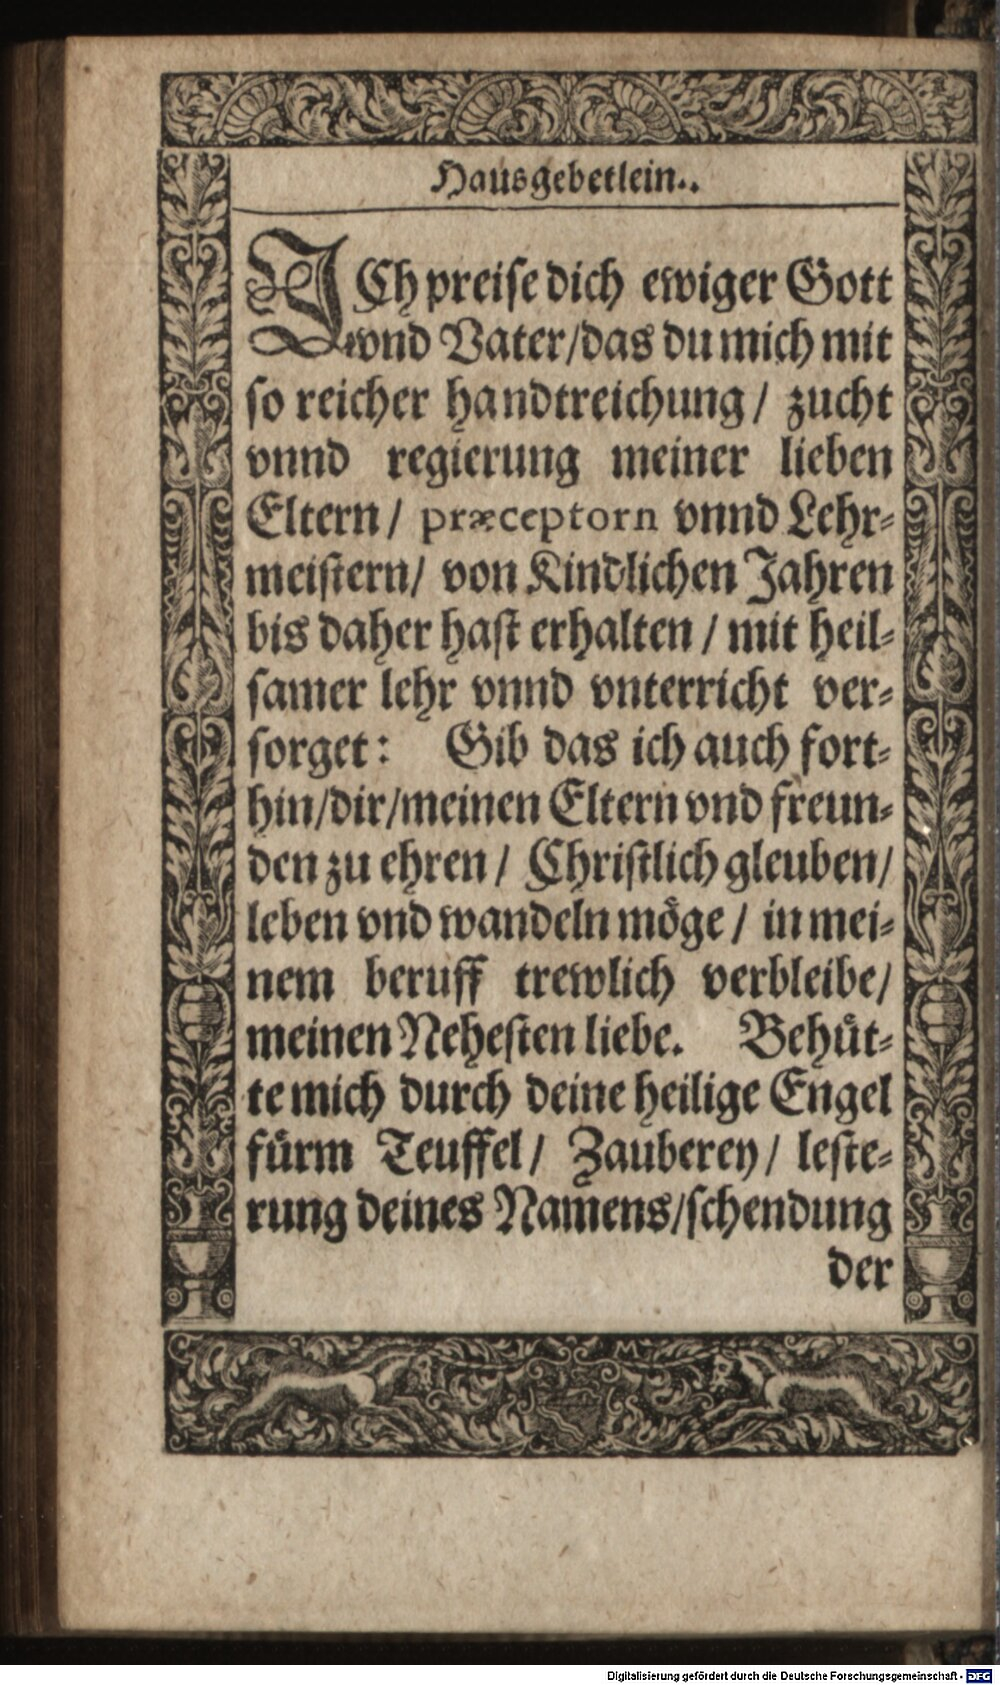 Hausgebetlein..
ICh preise dich ewiger Gott
vnd Vater/das du mich mit
so reicher handtreichung/ zucht
vnnd regierung meiner lieben
Eltern/ præceptorn vnnd Lehr-
meistern/ von Kindlichen Jahren
bis daher hast erhalten / mit heil-
samer lehr vnnd vnterricht ver-
sorget: Gib das ich auch fort-
hin/dir/meinen Eltern vnd freun-
den zu ehren/ Christlich gleuben/
leben vnd wandeln möge / in mei-
nem beruff trewlich verbleibe/
meinen Nehesten liebe. Behüt-
te mich durch deine heilige Engel
fürm Teuffel/ Zauberey/ leste-
rung deines Namens/schendung
der
M
Digitalisierung gefördert durch die Deutsche Forschungsgemeinschaft - DFG